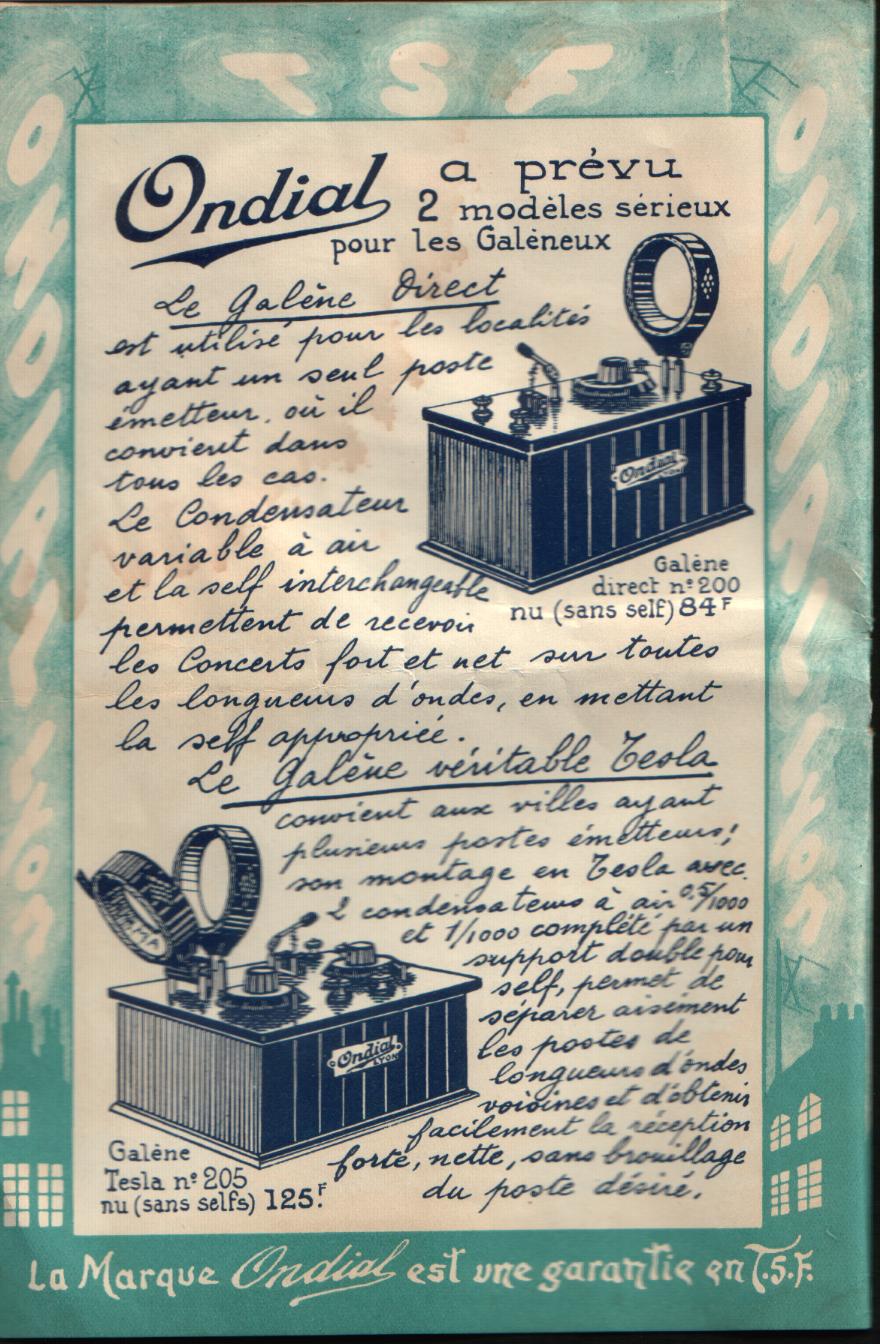 T S F
ONDIAL Lyon
ONDIAL Lyon
Ondial a prévu
2 modèles sérieux
pour les Galèneux
Le Galène Direct
est utilisé pour les localités
ayant un seul poste
émetteur, où il
convient dans
tous les cas.
Le Condensateur
variable à air
et la self interchangeable
permettent de recevoir
les Concerts fort et net sur toutes
les longueurs d'ondes, en mettant
la self appropriée.
Ondial
LYON
Galène
direct nº 200
nu (sans self) 84F
Le Galène véritable Tesla
convient aux villes ayant
plusieurs postes émetteurs;
son montage en Tesla avec
2 condensateurs à air 0,5/1000
et 1/1000 complété par un
support double pour
self, permet de
séparer aisément
les postes de
longueurs d'ondes
voisines et d'obtenir
facilement la réception
forte, nette, sans brouillage
du poste désiré.
Ondial
LYON
Galène
Tesla nº 205
nu (sans selfs) 125F.
La Marque Ondial est une garantie en T.S.F.